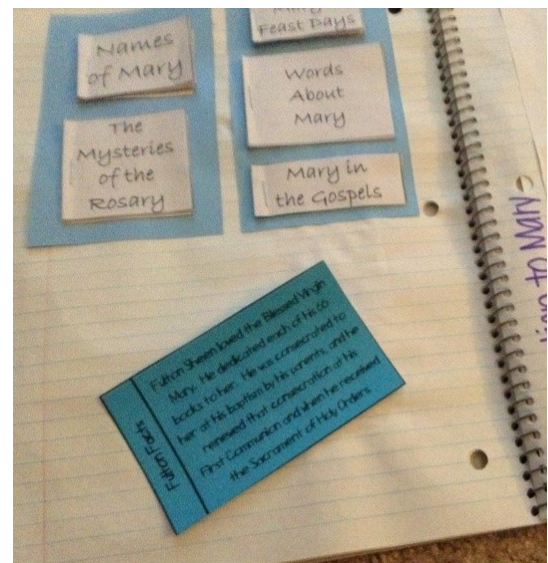 Names
of Mary
The
Mysteries
of the
Rosary
Feast Days
Words
About
Mary
Mary in
the Gospels
Fulton Facts
Fulton Sheen loved the Blessed Virgin
Mary. He dedicated each of his 60
books to her. He was consecrated to
her at his baptism by his parents, and he
renewed that consecration at his
First Communion and when he received
the Sacrament of Holy Orders.
to Mary